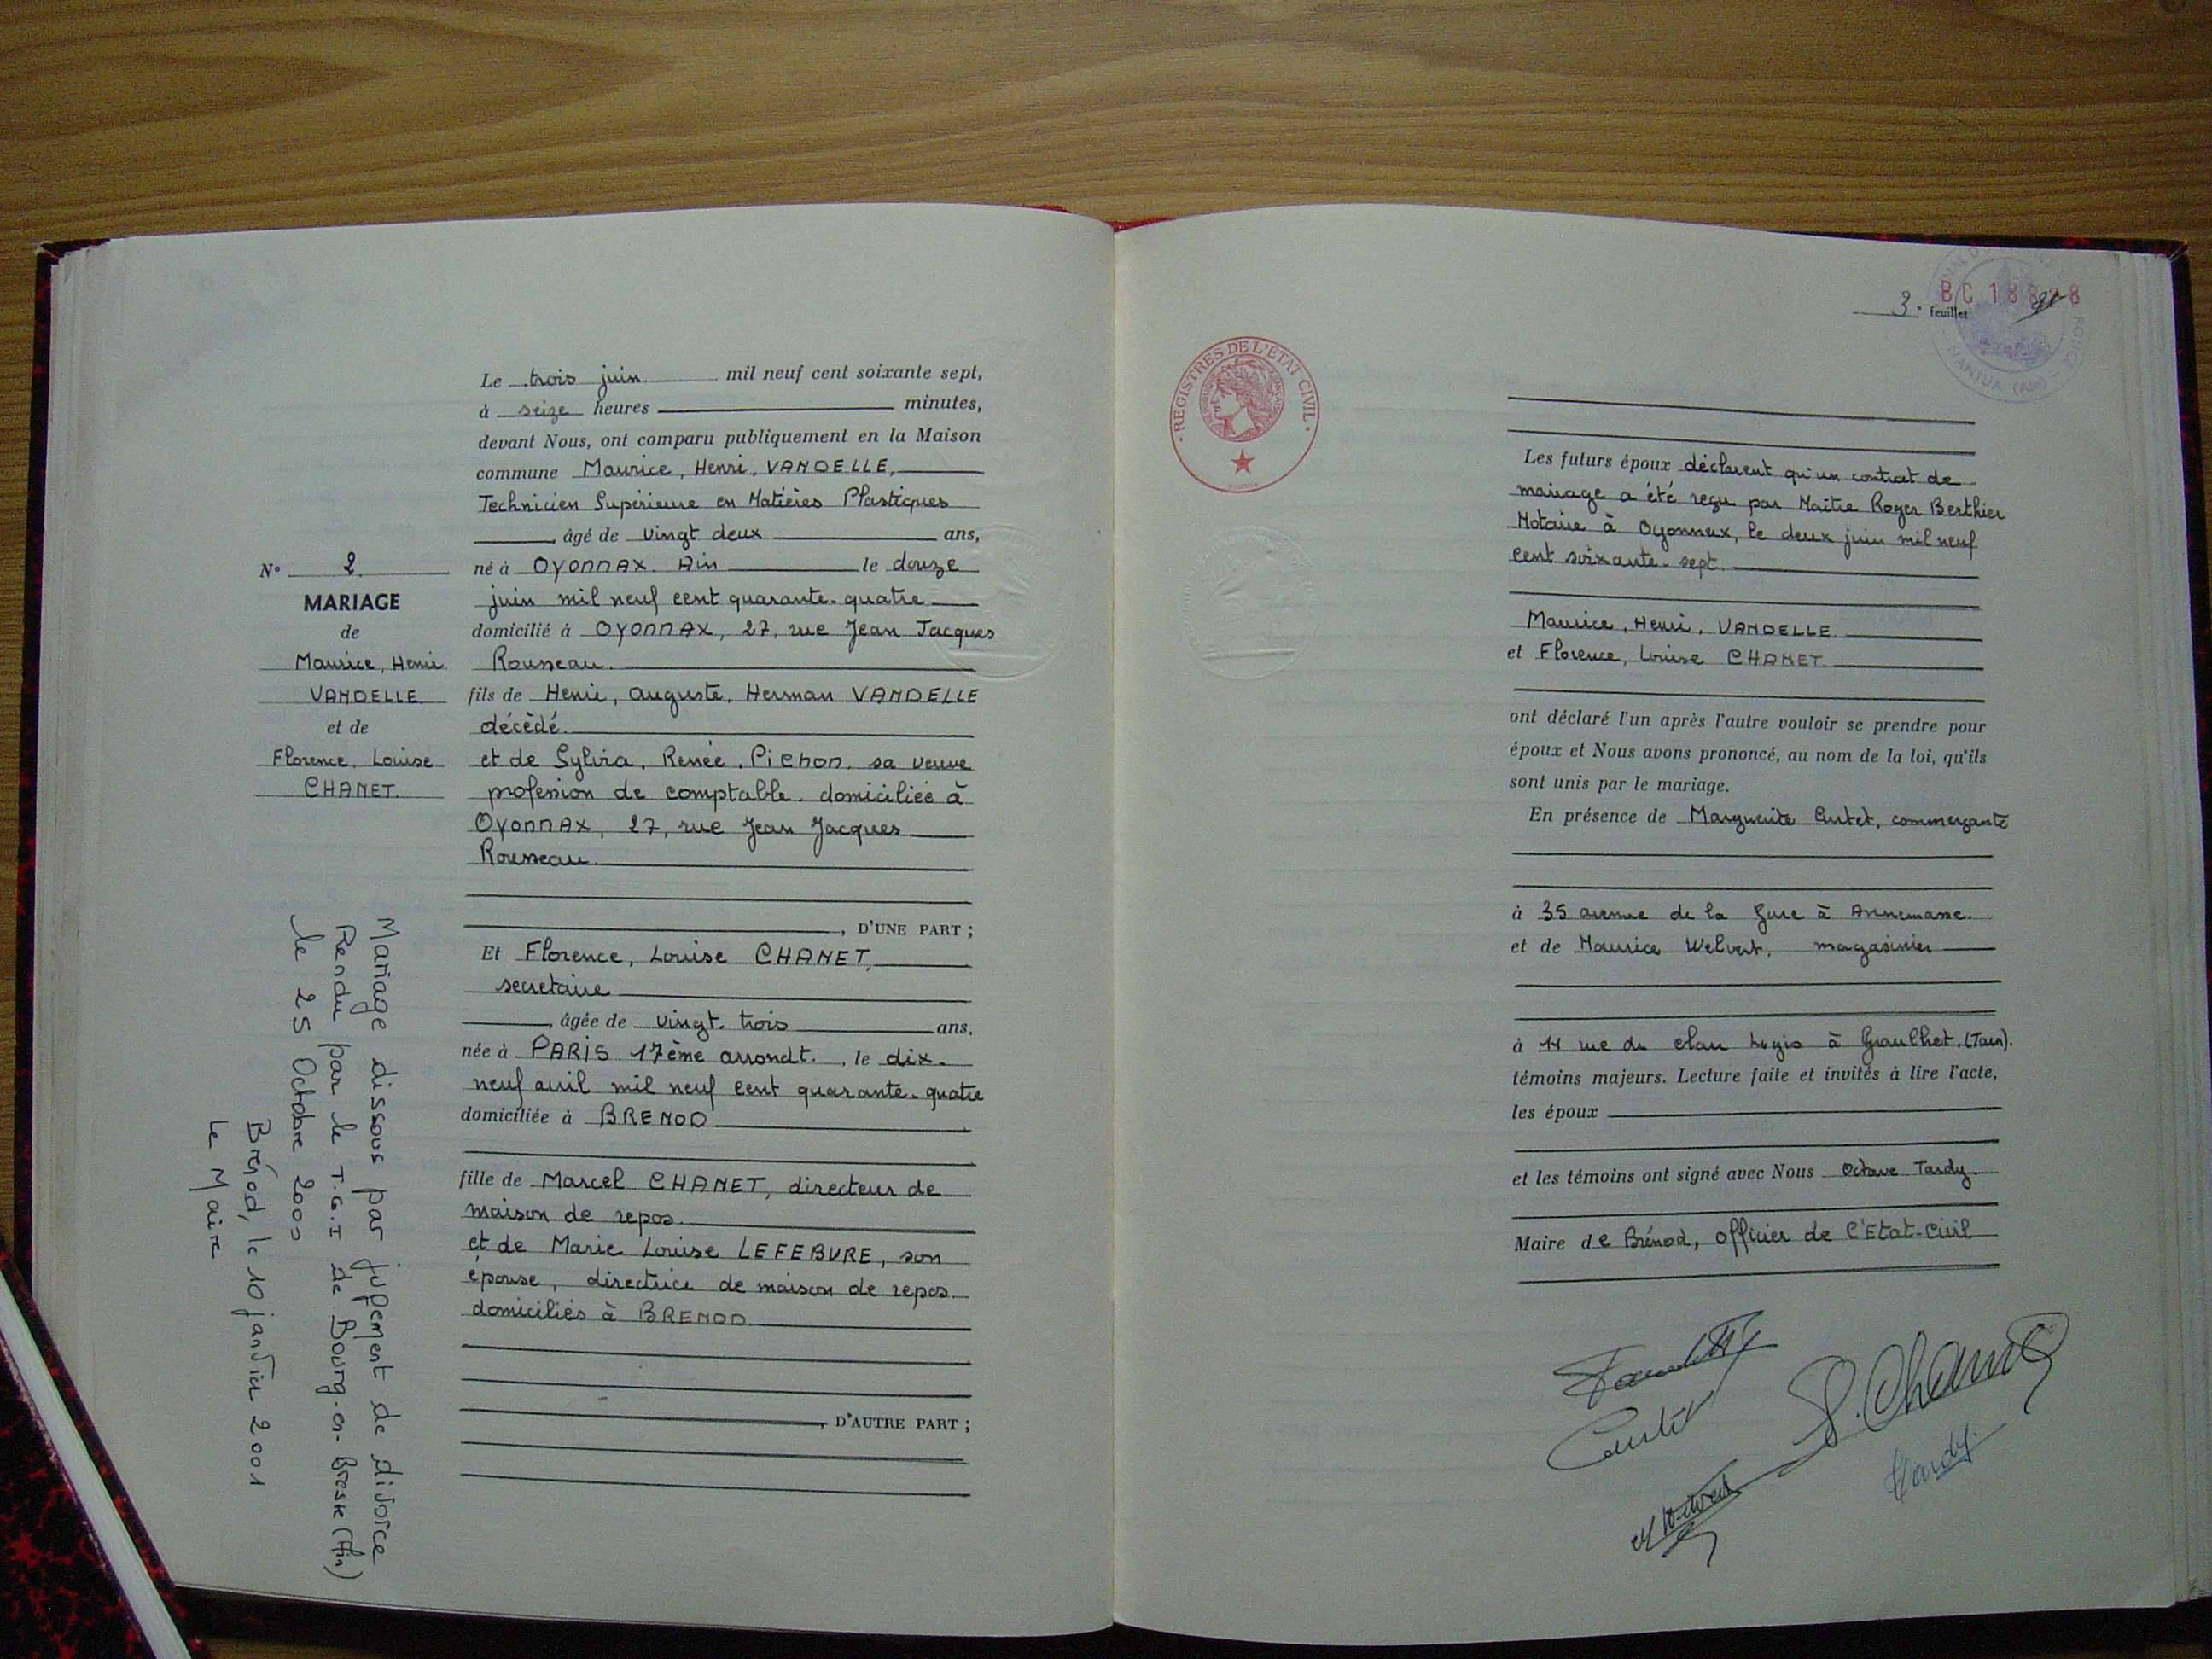 Le trois juin mil neuf cent soixante sept,
à seize heures minutes,
devant Nous, ont comparu publiquement en la Maison
commune Maurice, Henri, VANDELLE,
Technicien Supérieur en Matières Plastiques
, âgé de vingt deux ans,
né à OYONNAX. Ain le douze
juin mil neuf cent quarante-quatre
domicilié à OYONNAX, 27, rue Jean Jacques
Rousseau.
fils de Henri, Auguste, Herman VANDELLE
décédé.
et de Sylvia, Renée, Pichon, sa veuve
profession de comptable. domiciliée à
OYONNAX, 27, rue Jean Jacques
Rousseau.
, D'UNE PART ;
Et Florence, Louise CHANET,
secretaire
, âgée de vingt-trois ans,
née à PARIS 17ème arrondt., le dix-
neuf avril mil neuf cent quarante-quatre
domiciliée à BRENOD
fille de Marcel CHANET, directeur de
maison de repos.
et de Marie Louise LEFEBVRE, son
épouse, directrice de maison de repos
domiciliés à BRENOD
, D'AUTRE PART ;
N° 2
MARIAGE
de
Maurice, Henri
VANDELLE
et de
Florence, Louise
CHANET.
Mariage dissous par jugement de divorce
Rendu par le T.G.I de Bourg-en-Bresse (Ain)
le 25 Octobre 2000
Brénod, le 10 janvier 2001
Le Maire
REGISTRES DE L'ÉTAT CIVIL
BC 18
3. feuillet
NANTUA (Ain)
Les futurs époux déclarent qu'un contrat de
mariage a été reçu par Maître Roger Berthier
Notaire à Oyonnax, le deux juin mil neuf
cent soixante-sept.
Maurice, Henri, VANDELLE
et Florence, Louise CHANET
ont déclaré l'un après l'autre vouloir se prendre pour
époux et Nous avons prononcé, au nom de la loi, qu'ils
sont unis par le mariage.
En présence de Marguerite Curtet, commerçante
à 35 avenue de la Gare à Annemasse.
et de Maurice Welvert, magasinier
à 14 rue du Logis à Graulhet (Tarn).
témoins majeurs. Lecture faite et invités à lire l'acte,
les époux
et les témoins ont signé avec Nous Octave Tardy
Maire de Brénod, officier de l'Etat-Civil
Tardy